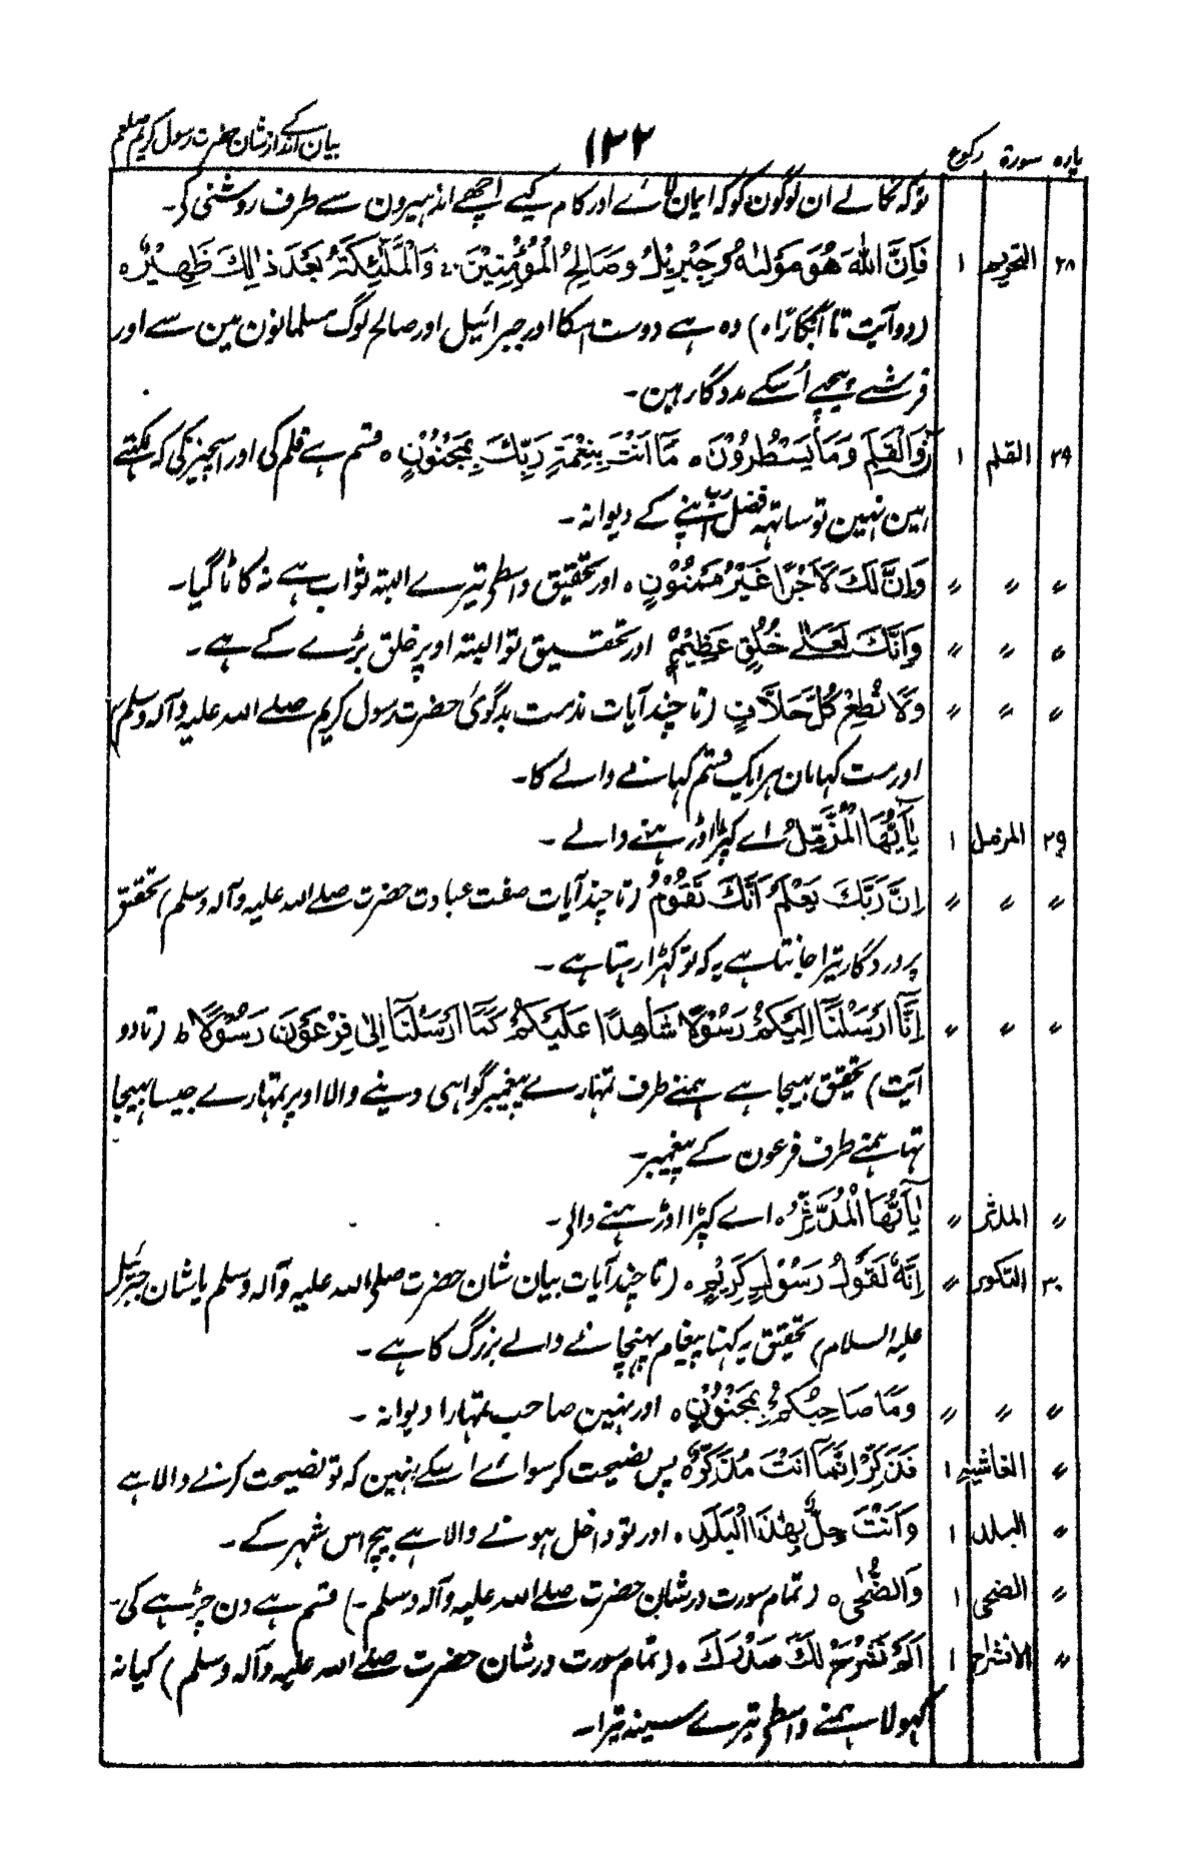 پارہ سورة رکوع ۱۲۲ بیان آنداز شان حضرت رسول کریم صلعم
توکہ نکالے ان لوگون کو کہ ایمان لائے اور کام کیے اچھے اندہیرون سے طرف روشنی کے۔
۲۸ التحریم ۱ فَاِنَّ اللّٰهَ هُوَ مَوْلٰىهُ وَجِبْرِيْلُ وَصَالِحُ الْمُؤْمِنِيْنَ ۚ وَالْمَلٰٓئِكَةُ بَعْدَ ذٰلِكَ ظَهِيْرٌ ہ
(دو آیت تا ابکارًا ہ) وہ ہے دوست اسکا اور جبرائیل اور صالح لوگ مسلمانون مین سے اور
فرشتے پیچھے اُسکے مددگار ہین۔
۲۹ القلم ۱ نٓ وَالْقَلَمِ وَمَا يَسْطُرُوْنَ ہ مَآ اَنْتَ بِنِعْمَةِ رَبِّكَ بِمَجْنُوْنٍ ہ قسم ہے قلم کی اور اسچیز کی کہ لکھتے
ہین نہین تو ساتہہ فضل رب اپنے کے دیوانہ۔
〃 〃 〃 وَاِنَّ لَكَ لَاَجْرًا غَيْرَ مَمْنُوْنٍ ہ اور تحقیق واسطے تیرے البتہ ثواب ہے نہ کاٹا گیا۔
〃 〃 〃 وَاِنَّكَ لَعَلٰى خُلُقٍ عَظِيْمٍ اور تحقیق تو البتہ اوپر خلق بڑے کے ہے۔
〃 〃 〃 وَلَا تُطِعْ كُلَّ حَلَّافٍ (تا چند آیات مذمت بدگوئ حضرت رسول کریم صلے اللہ علیہ وآلہ وسلم)
اور مت کہا مان ہر ایک قسم کہانے والے کا۔
۲۹ المزمل ۱ يٰٓاَيُّهَا الْمُزَّمِّلُ اے کپڑا اوڑہنے والے۔
〃 〃 〃 اِنَّ رَبَّكَ يَعْلَمُ اَنَّكَ تَقُوْمُ (تا چند آیات صفت عبادت حضرت صلے اللہ علیہ وآلہ وسلم) تحقیق
پروردگار تیرا جانتا ہے یہ کہ تو کہڑا رہتا ہے۔
〃 〃 〃 اِنَّآ اَرْسَلْنَآ اِلَيْكُمْ رَسُوْلًا شَاهِدًا عَلَيْكُمْ كَمَآ اَرْسَلْنَآ اِلٰى فِرْعَوْنَ رَسُوْلًا ط (تا دو
آیت) تحقیق بہیجا ہے ہمنے طرف تمہارے پیغمبر گواہی دینے والا اوپر تمہارے جیسا بہیجا
تہا ہمنے طرف فرعون کے پیغمبر۔
〃 المدثر 〃 يٰٓاَيُّهَا الْمُدَّثِّرُ ہ اے کپڑا اوڑہنے والے۔
۳۰ التکویر 〃 اِنَّهٗ لَقَوْلُ رَسُوْلٍ كَرِيْمٍ ہ (تا چند آیات بیان شان حضرت صلی اللہ علیہ وآلہ وسلم یا شان جبرئیل
علیہ السلام) تحقیق یہ کہنا پیغام پہنچانے والے بزرگ کا ہے۔
〃 〃 〃 وَمَا صَاحِبُكُمْ بِمَجْنُوْنٍ ہ اور نہین صاحب تمہارا دیوانہ۔
〃 الغاشیه ۱ فَذَكِّرْ اِنَّمَآ اَنْتَ مُذَكِّرٌ ہ پس نصیحت کر سوائے اسکے نہین کہ تو نصیحت کرنے والا ہے
〃 البلد ۱ وَاَنْتَ حِلٌّۢ بِهٰذَا الْبَلَدِ ہ اور تو داخل ہونے والا ہے بیچ اس شہر کے۔
〃 الضحی ۱ وَالضُّحٰى ہ (تمام سورت در شان حضرت صلے اللہ علیہ وآلہ وسلم۔) قسم ہے دن چڑہے کی۔
〃 الانشراح ۱ اَلَمْ نَشْرَحْ لَكَ صَدْرَكَ ہ (تمام سورت در شان حضرت صلے اللہ علیہ وآلہ وسلم) کیا نہ
کہولا ہمنے واسطے تیرے سینہ تیرا۔